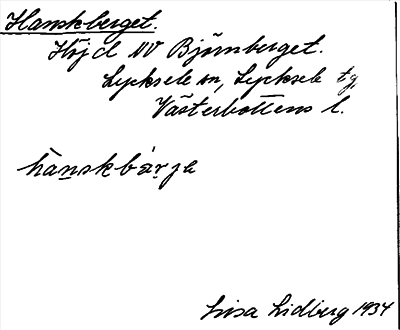 Hanskberget.
Höjd NV Björnberget.
Lycksele sn, Lycksele tg,
Västerbottens l.
hànskbàrje
Lisa Lidberg 1934